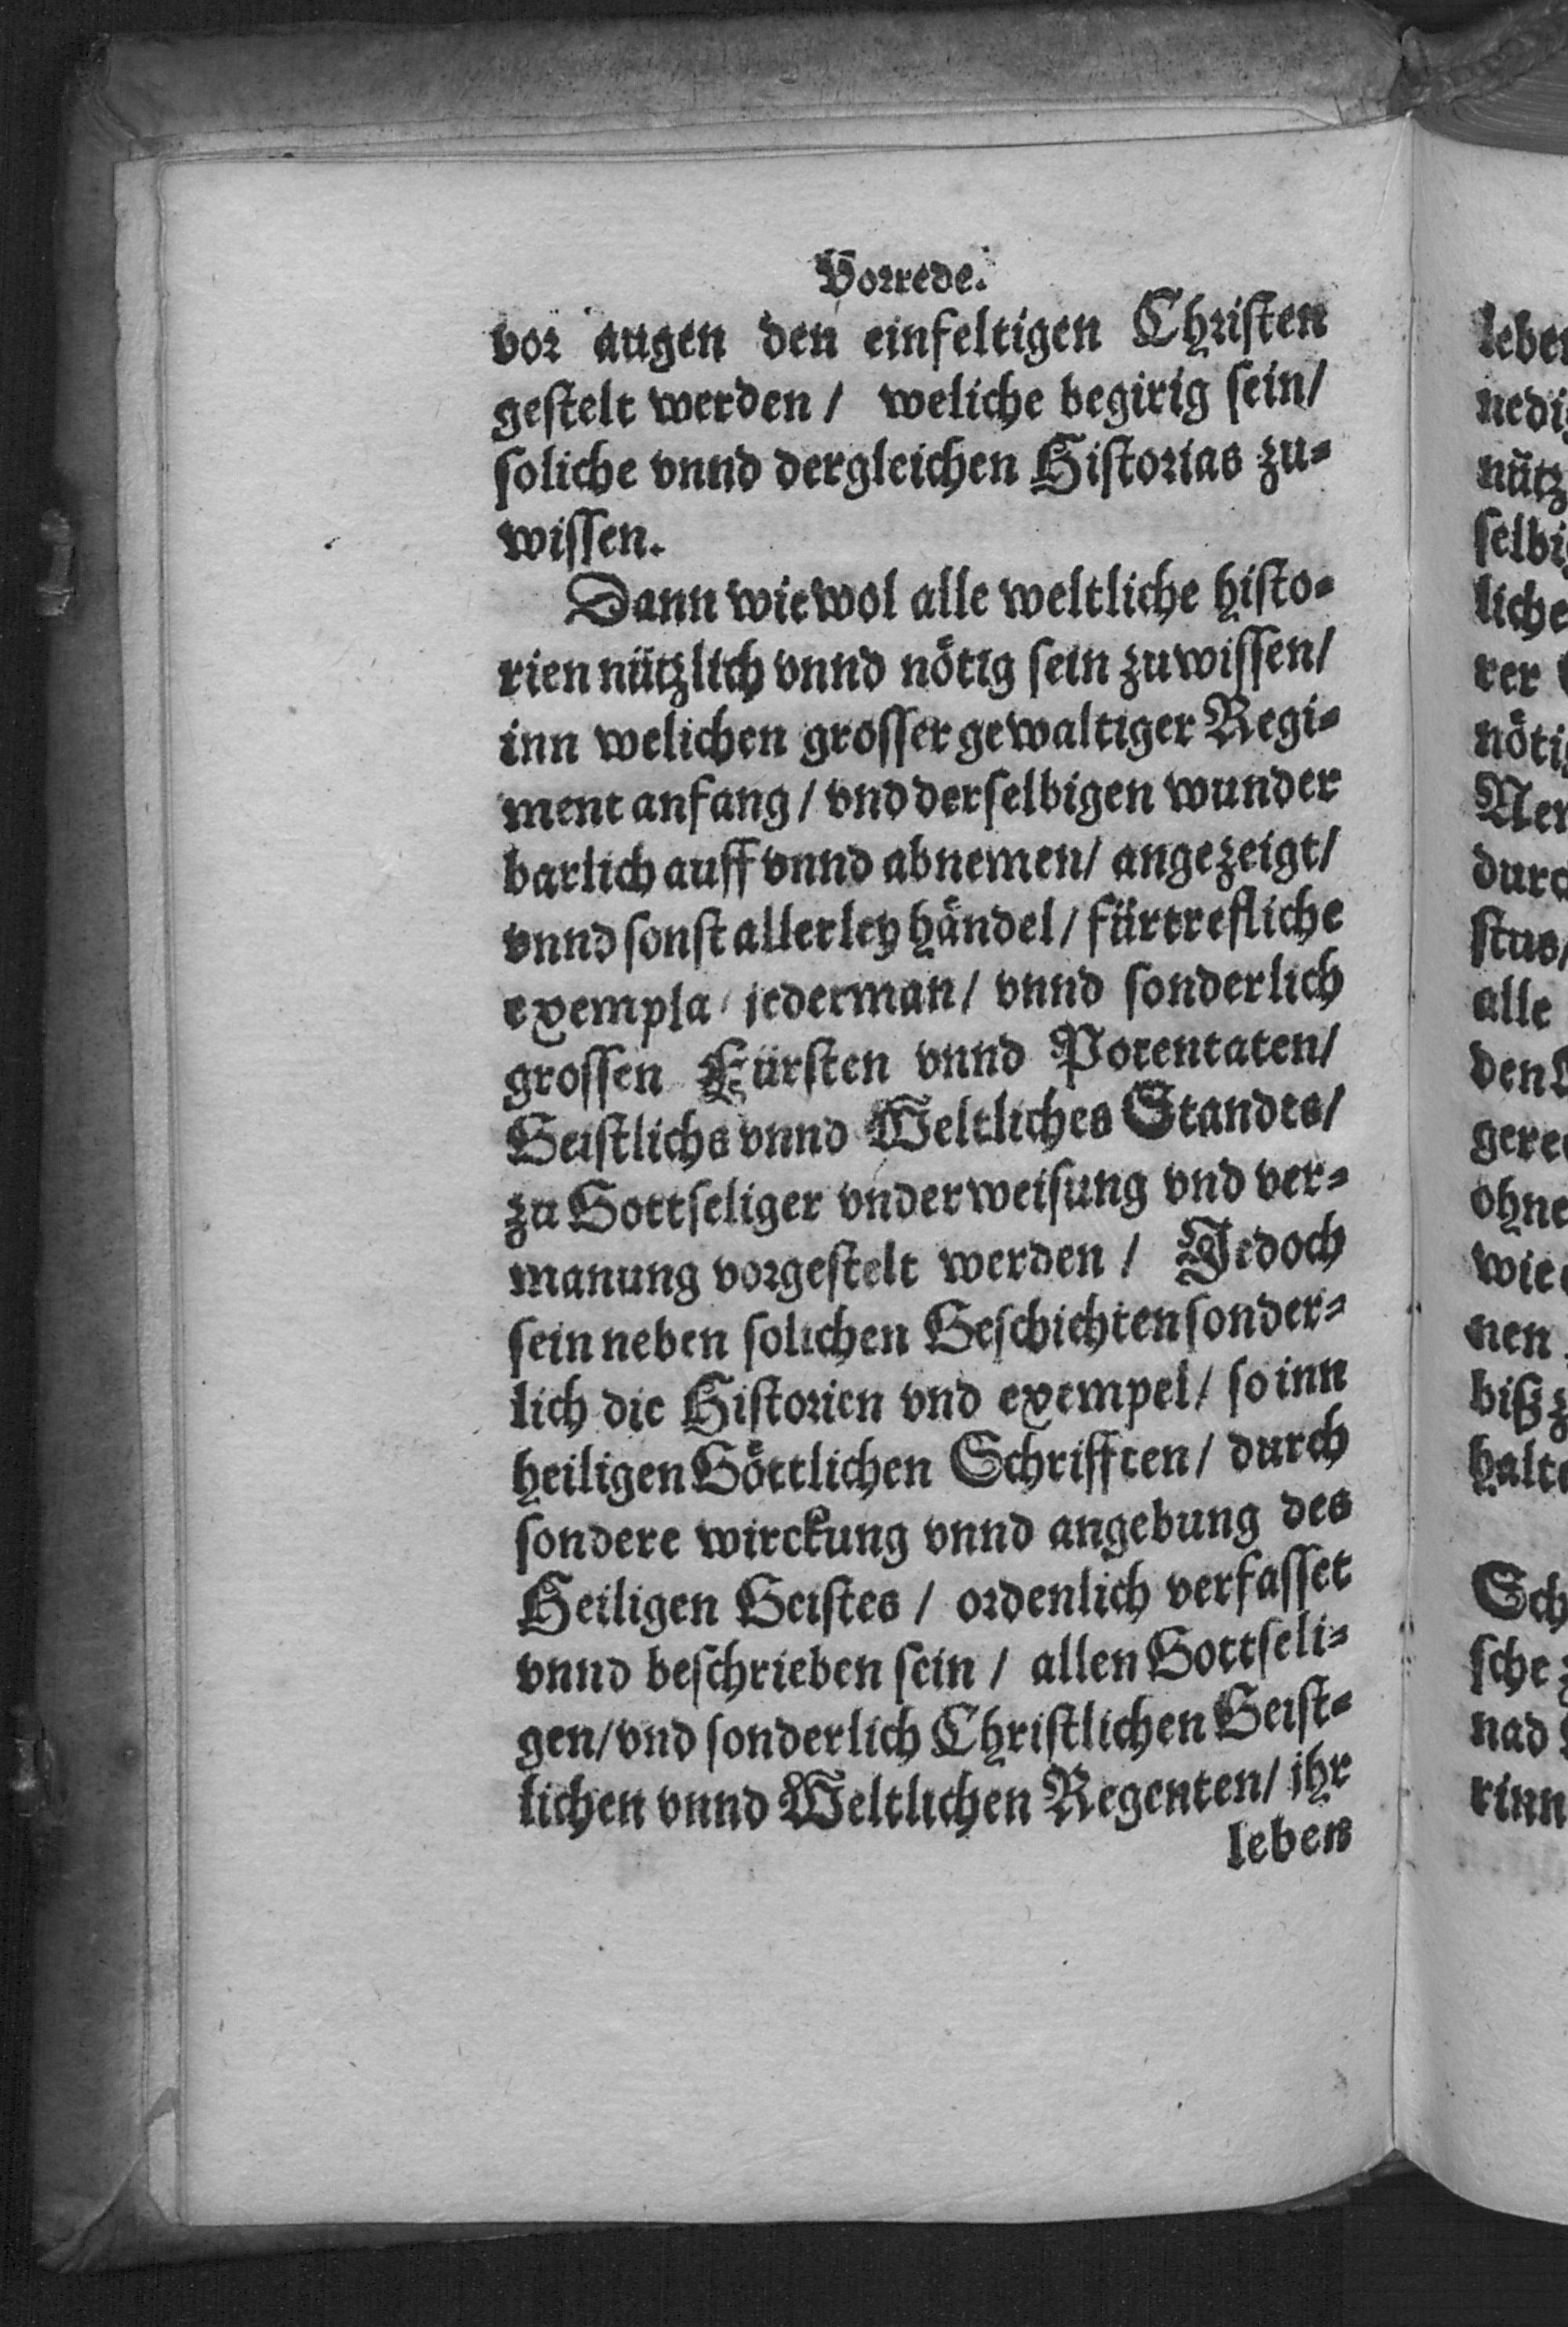 Vorrede.
vor augen den einfeltigen Christen
gestelt werden / weliche begirig sein/
soliche vnnd dergleichen Historias zu⸗
wissen.
Dann wiewol alle weltliche histo⸗
rien nützlich vnnd nötig sein zuwissen/
inn welichen grosser gewaltiger Regi⸗
ment anfang / vnd derselbigen wunder
barlich auff vnnd abnemen / angezeigt/
vnnd sonst allerley händel / fürtrefliche
exempla / jederman / vnnd sonderlich
grossen Fürsten vnnd Potentaten/
Geistlichs vnnd Weltliches Standes/
zu Gottseliger vnderweisung vnd ver⸗
manung vorgestelt werden / Jedoch
sein neben solichen Geschichten sonder⸗
lich die Historien vnd exempel / so inn
heiligen Göttlichen Schrifften / durch
sondere wirckung vnnd angebung des
Heiligen Geistes / ordenlich verfasset
vnnd beschrieben sein / allen Gottseli⸗
gen / vnd sonderlich Christlichen Geist⸗
lichen vnnd Weltlichen Regenten / ihr
leben
nötig
alle
ohne
nen
nad